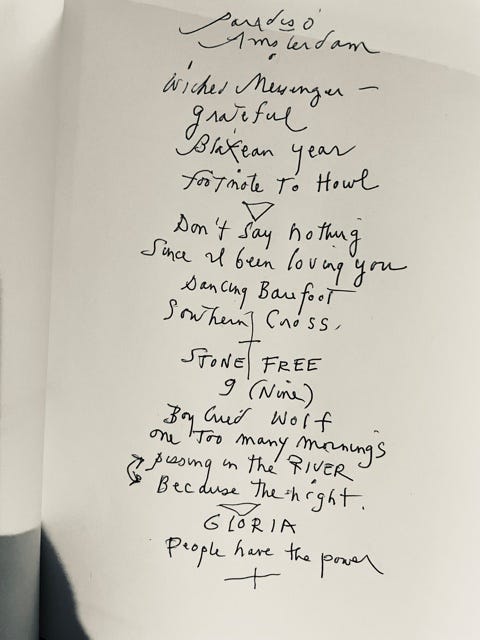 Paradiso
Amsterdam
Wicked Messenger —
grateful
Blakean year
footnote to Howl
Don't say nothing
Since I been loving you
Dancing Barefoot
Southern Cross.
STONE FREE
9 (Nine)
Boy Cried Wolf
one Too many mornings
pissing in the RIVER
Because the night.
GLORIA
People have the power